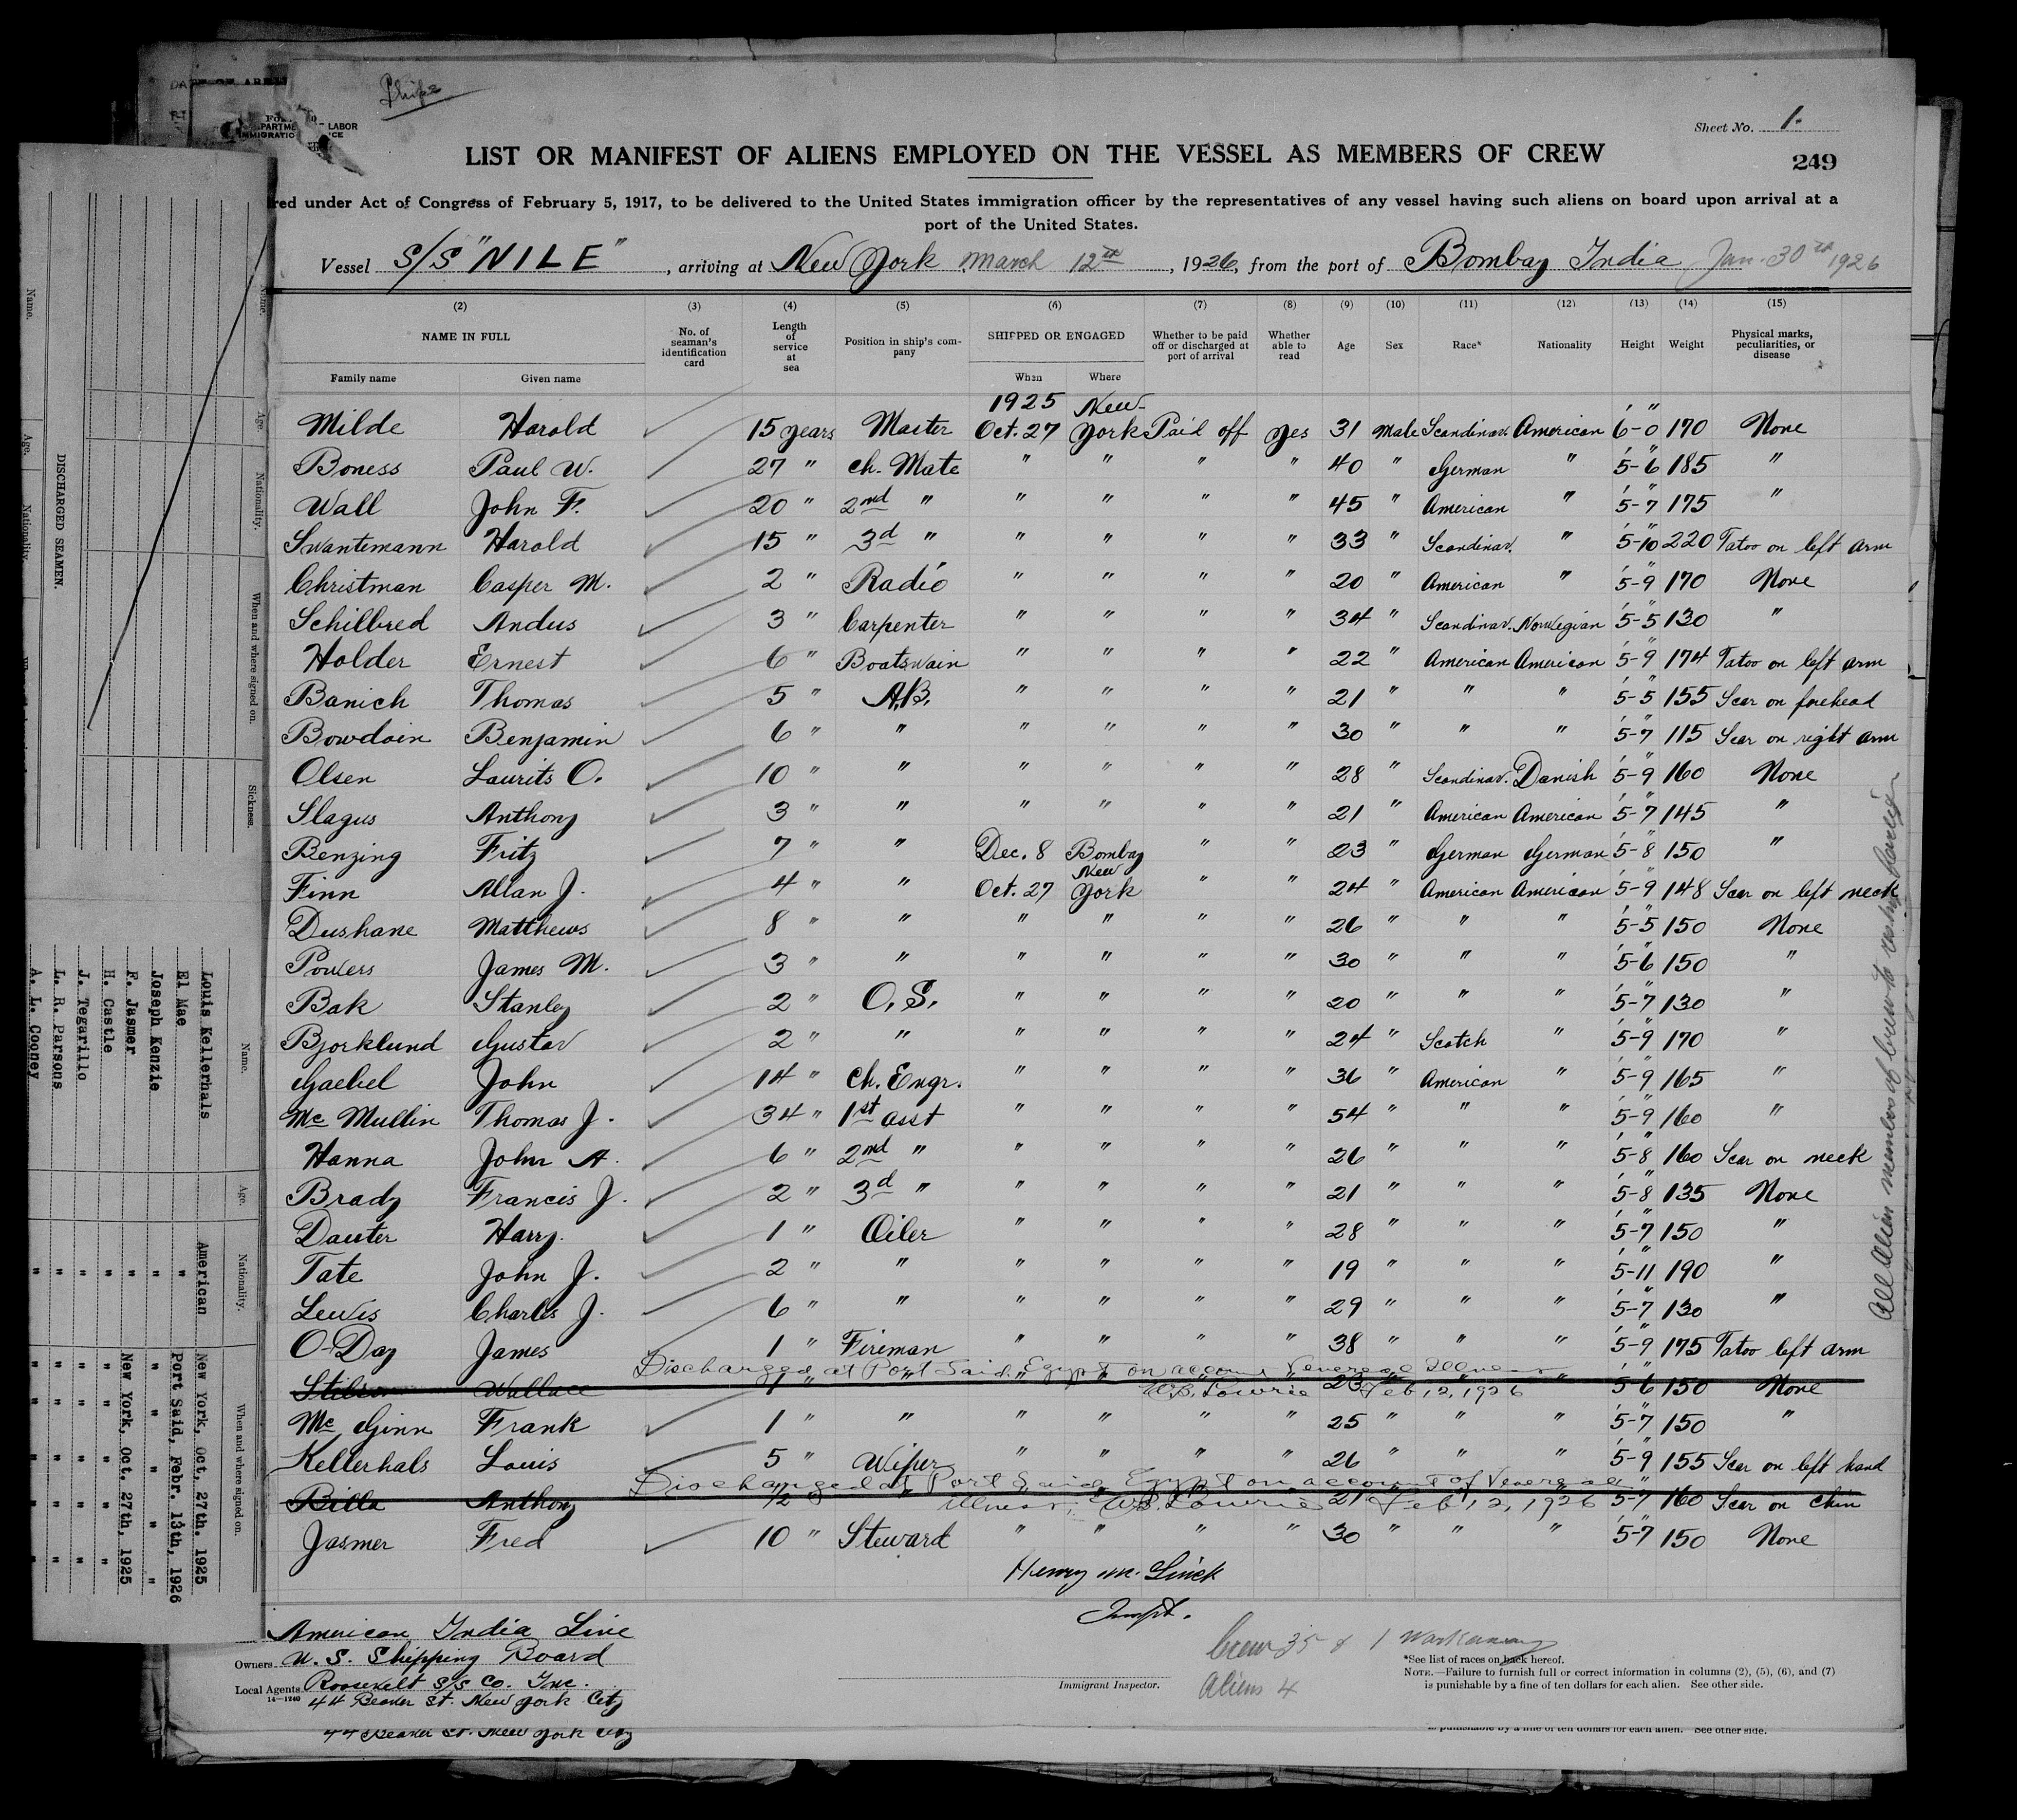 Phipe
DEPARTMENT LABOR
IMMIGRATION
Sheet No. 1.
LIST OR MANIFEST OF ALIENS EMPLOYED ON THE VESSEL AS MEMBERS OF CREW
249
red under Act of Congress of February 5, 1917, to be delivered to the United States immigration officer by the representatives of any vessel having such aliens on board upon arrival at a
port of the United States.
Vessel S/S "NILE", arriving at New York March 12th, 1926, from the port of Bombay India Jan. 30th 1926
(2) (3) (4) (5) (6) (7) (8) (9) (10) (11) (12) (13) (14) (15)
NAME IN FULL No. of seaman's identification card Length of service at sea Position in ship's company SHIPPED OR ENGAGED Whether to be paid off or discharged at port of arrival Whether able to read Age Sex Race* Nationality Height Weight Physical marks, peculiarities, or disease
Family name Given name When Where
1925 New
Milde Harold 15 years Master Oct. 27 York Paid off yes 31 male Scandinav. American 6-0 170 None
Boness Paul W. 27 " ch. Mate " " " " 40 " German " 5-6 185 "
Wall John F. 20 " 2nd " " " " " 45 " American " 5-7 175 "
Swantemann Harold 15 " 3d " " " " " 33 " Scandinav. " 5-10 220 Tatoo on left arm
Christman Casper M. 2 " Radio " " " " 20 " American " 5-9 170 None
Schilbred Andus 3 " Carpenter " " " " 34 " Scandinav. Norwegian 5-5 130 "
Holder Ernest 6 " Boatswain " " " " 22 " American American 5-9 174 Tatoo on left arm
Banich Thomas 5 " A.B. " " " " 21 " " " 5-5 155 Scar on forehead
Bowdoin Benjamin 6 " " " " " " 30 " " " 5-7 115 Scar on right arm
Olsen Laurits O. 10 " " " " " " 28 " Scandinav. Danish 5-9 160 None
Slagus Anthony 3 " " " " " " 21 " American American 5-7 145 "
Benzing Fritz 7 " " Dec. 8 Bombay " " 23 " German German 5-8 150 "
Finn Allan J. 4 " " Oct. 27 New York " " 24 " American American 5-9 148 Scar on left neck
Dushane Matthews 8 " " " " " " 26 " " " 5-5 150 None
Powers James M. 3 " " " " " " 30 " " " 5-6 150 "
Bak Stanley 2 " O.S. " " " " 20 " " " 5-7 130 "
Bjorklund Gustav 2 " " " " " " 24 " Scotch " 5-9 170 "
Gaebel John 14 " ch. Engr. " " " " 36 " American " 5-9 165 "
Mc Mullin Thomas J. 34 " 1st asst " " " " 54 " " " 5-9 160 "
Hanna John A. 6 " 2nd " " " " " 26 " " " 5-8 160 Scar on neck
Brady Francis J. 2 " 3d " " " " " 21 " " " 5-8 135 None
Dauter Harry 1 " Oiler " " " " 28 " " " 5-7 150 "
Tate John J. 2 " " " " " " 19 " " " 5-11 190 "
Lewis Charles J. 6 " " " " " " 29 " " " 5-7 130 "
O-Day James 1 " Fireman " " " " 38 " " " 5-9 175 Tatoo left arm
Discharged at Port Said, Egypt on account Venereal Illness
Wallace 1 " " " " 23 5-6 150 None
W.B. Lowrie Feb 12, 1926
Mc Ginn Frank 1 " " " " " " 25 " " " 5-7 150 "
Kellerhals Louis 5 " Wiper " " " " 26 " " " 5-9 155 Scar on left hand
Discharged at Port Said, Egypt on account of Venereal
Billa Anthony 1/2 21 5-7 160 Scar on chin
Illness. W.B. Lowrie Feb 12, 1926
Jasmer Fred 10 " Steward " " " " 30 " " " 5-7 150 None
Henry M.
All alien members of crew to
American India Line
Owners U. S. Shipping Board
Local Agents Roosevelt S/S Co. Inc.
14-1240
44 Beaver St. New York City
44 Beaver St. New York City
Immigrant Inspector.
Crew 35 & 1 Workaway
Aliens 4
*See list of races on back hereof.
NOTE.—Failure to furnish full or correct information in columns (2), (5), (6), and (7)
is punishable by a fine of ten dollars for each alien. See other side.
is punishable by a fine of ten dollars for each alien. See other side.
DISCHARGED SEAMEN.
Name. Age. Nationality. When and where signed on. Sickness.
Name. Age. Nationality. When and where signed on.
Louis Kellerhals American New York, Oct. 27th, 1925
El Mae " Port Said, Febr. 13th, 1926
Joseph Kenzie " " " "
F. Jasmer " New York, Oct. 27th, 1925
H. Castle " " " " "
J. Tegarillo " " " " "
L. R. Parsons " " " " "
A. L. Cooney " " " " "